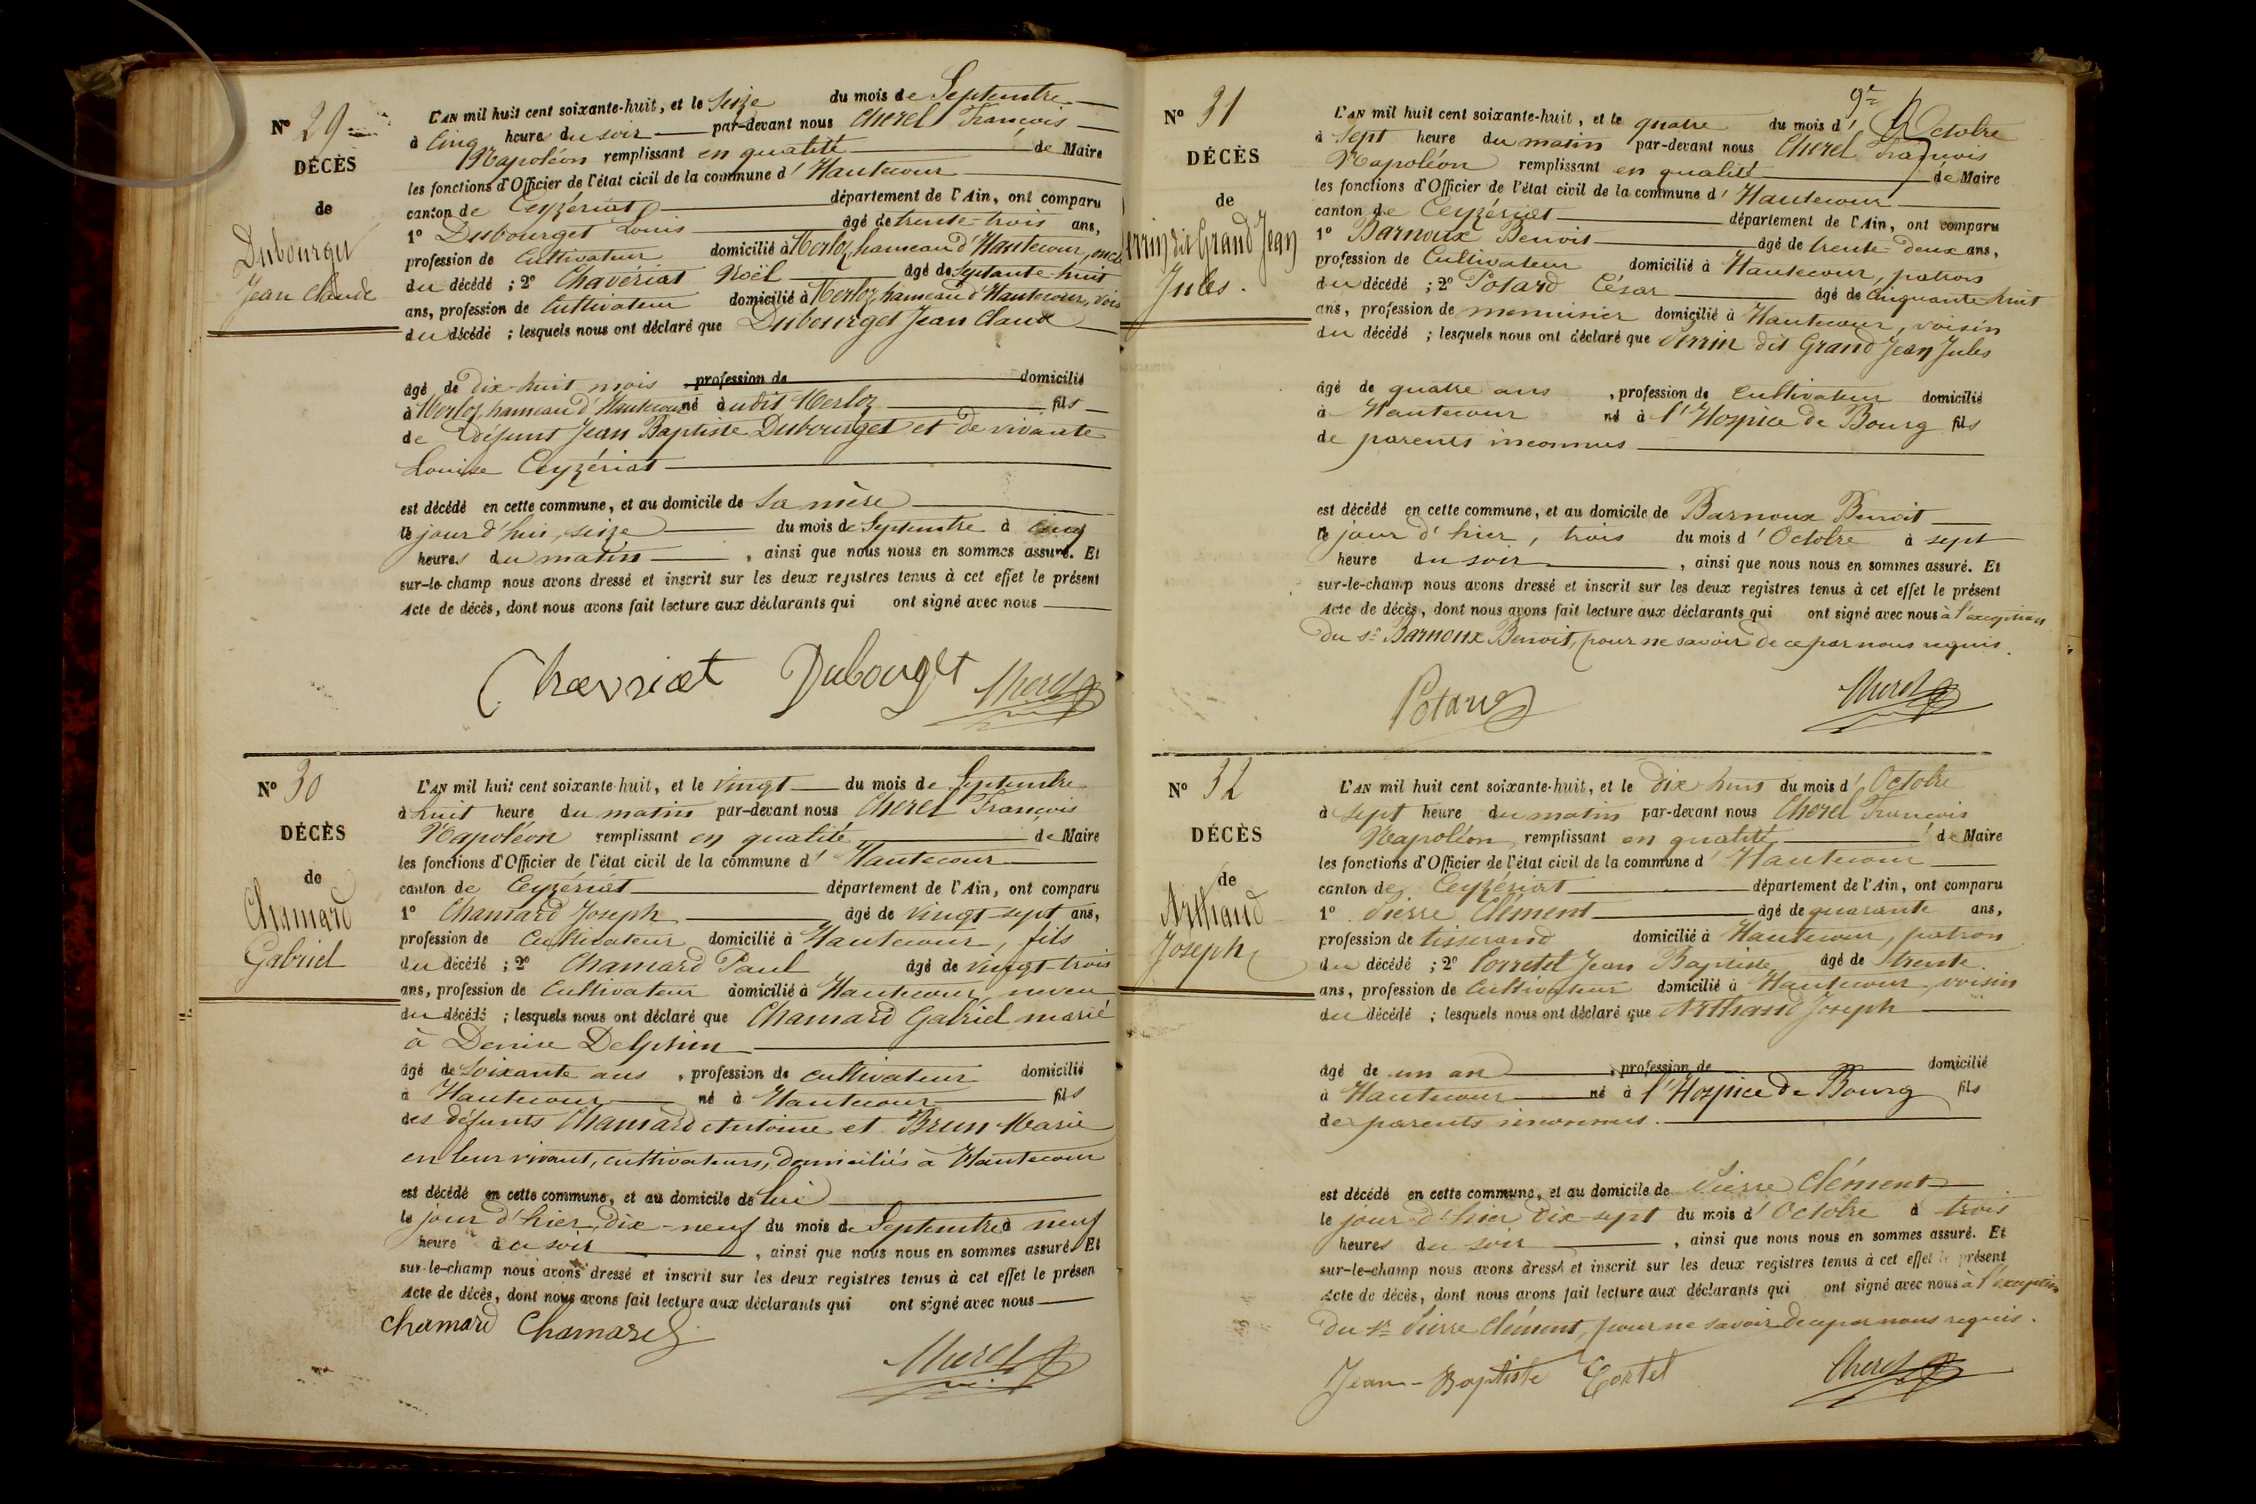 Nº 29
DÉCÈS
de
Dubourget
Jean Claude
L'AN mil huit cent soixante-huit, et le Seize du mois de Septembre
à Cinq heures du soir par-devant nous Cherel François
Napoléon remplissant en qualité de Maire
les fonctions d'Officier de l'état civil de la commune d'Hautecour
canton de Ceyzériat département de l'Ain, ont comparu
1º Dubourget Louis âgé de trente-trois ans,
profession de Cultivateur domicilié à Merloz, hameau d'Hautecour, oncle
du décédé ; 2º Chavériat Noël âgé de Septante-huit
ans, profession de Cultivateur domicilié à Merloz, hameau d'Hautecour, voisin
du décédé ; lesquels nous ont déclaré que Dubourget Jean Claude
âgé de dix-huit mois profession de domicilié
à Merloz, hameau d'Hautecour né à udit Merloz fils
de défunt Jean Baptiste Dubourget et de vivante
Louise Ceyzériat
est décédé en cette commune, et au domicile de Sa mère
le jour d'hui, seize du mois de Septembre à cinq
heures du matin, ainsi que nous nous en sommes assuré. Et
sur-le-champ nous avons dressé et inscrit sur les deux registres tenus à cet effet le présent
Acte de décès, dont nous avons fait lecture aux déclarants qui ont signé avec nous
Chavriat Dubourget Cherel
Nº 30
DÉCÈS
de
Chamard
Gabriel
L'AN mil huit cent soixante-huit, et le vingt du mois de Septembre
à huit heure du matin par-devant nous Cherel François
Napoléon remplissant en qualité de Maire
les fonctions d'Officier de l'état civil de la commune d'Hautecour
canton de Ceyzériat département de l'Ain, ont comparu
1º Chamard Joseph âgé de vingt-sept ans,
profession de cultivateur domicilié à Hautecour, fils
du décédé ; 2º Chamard Paul âgé de vingt-trois
ans, profession de Cultivateur domicilié à Hautecour, neveu
du décédé ; lesquels nous ont déclaré que Chamard Gabriel marié
à Denise Delphin
âgé de Soixante ans, profession de cultivateur domicilié
à Hautecour né à Hautecour fils
des défunts Chamard Antoine et Brun Marie
en leur vivant, cultivateurs, domiciliés à Hautecour
est décédé en cette commune, et au domicile de lui
le jour d'hier, dix-neuf du mois de Septembre à neuf
heure du soir, ainsi que nous nous en sommes assuré. Et
sur-le-champ nous avons dressé et inscrit sur les deux registres tenus à cet effet le présen
Acte de décès, dont nous avons fait lecture aux déclarants qui ont signé avec nous
Chamard Chamard
Cherel
Nº 31
DÉCÈS
de
Perrin dit Grand Jean
Jules.
L'AN mil huit cent soixante-huit, et le quatre du mois d'Octobre
à Sept heure du matin par-devant nous Cherel François
Napoléon remplissant en qualité de Maire
les fonctions d'Officier de l'état civil de la commune d'Hautecour
canton de Ceyzériat département de l'Ain, ont comparu
1º Barnoux Benoit âgé de trente-deux ans,
profession de Cultivateur domicilié à Hautecour, patron
du décédé ; 2º Potard César âgé de Cinquante huit
ans, profession de menuisier domicilié à Hautecour, voisin
du décédé ; lesquels nous ont déclaré que Perrin dit Grand Jean Jules
âgé de quatre ans, profession de cultivateur domicilié
à Hautecour né à l'Hospice de Bourg fils
de parents inconnus
est décédé en cette commune, et au domicile de Barnoux Benoit
le jour d'hier, trois du mois d'Octobre à sept
heure du soir, ainsi que nous nous en sommes assuré. Et
sur-le-champ nous avons dressé et inscrit sur les deux registres tenus à cet effet le présent
Acte de décès, dont nous avons fait lecture aux déclarants qui ont signé avec nous à l'exception
du sr Barnoux Benoit, pour ne savoir de ce par nous requis.
Potard Cherel
Nº 32
DÉCÈS
de
Arthaud
Joseph
L'AN mil huit cent soixante-huit, et le dix huit du mois d'Octobre
à sept heure du matin par-devant nous Cherel François
Napoléon, remplissant en qualité de Maire
les fonctions d'Officier de l'état civil de la commune d'Hautecour
canton de Ceyzériat département de l'Ain, ont comparu
1º Pierre Clément âgé de quarante ans,
profession de tisserand domicilié à Hautecour, patron
du décédé ; 2º Corretel Jean Baptiste âgé de trente
ans, profession de Cultivateur domicilié à Hautecour, voisin
du décédé ; lesquels nous ont déclaré que Arthaud Joseph
âgé de un an, profession de domicilié
à Hautecour né à l'Hospice de Bourg fils
de parents inconnus.
est décédé en cette commune, et au domicile de Pierre Clément
le jour d'hier dix-sept du mois d'Octobre à trois
heures du soir, ainsi que nous nous en sommes assuré. Et
sur-le-champ nous avons dressé et inscrit sur les deux registres tenus à cet effet le présent
Acte de décès, dont nous avons fait lecture aux déclarants qui ont signé avec nous à l'exception
du sr Pierre Clément, pour ne savoir de ce par nous requis.
Jean-Baptiste Cortet Cherel